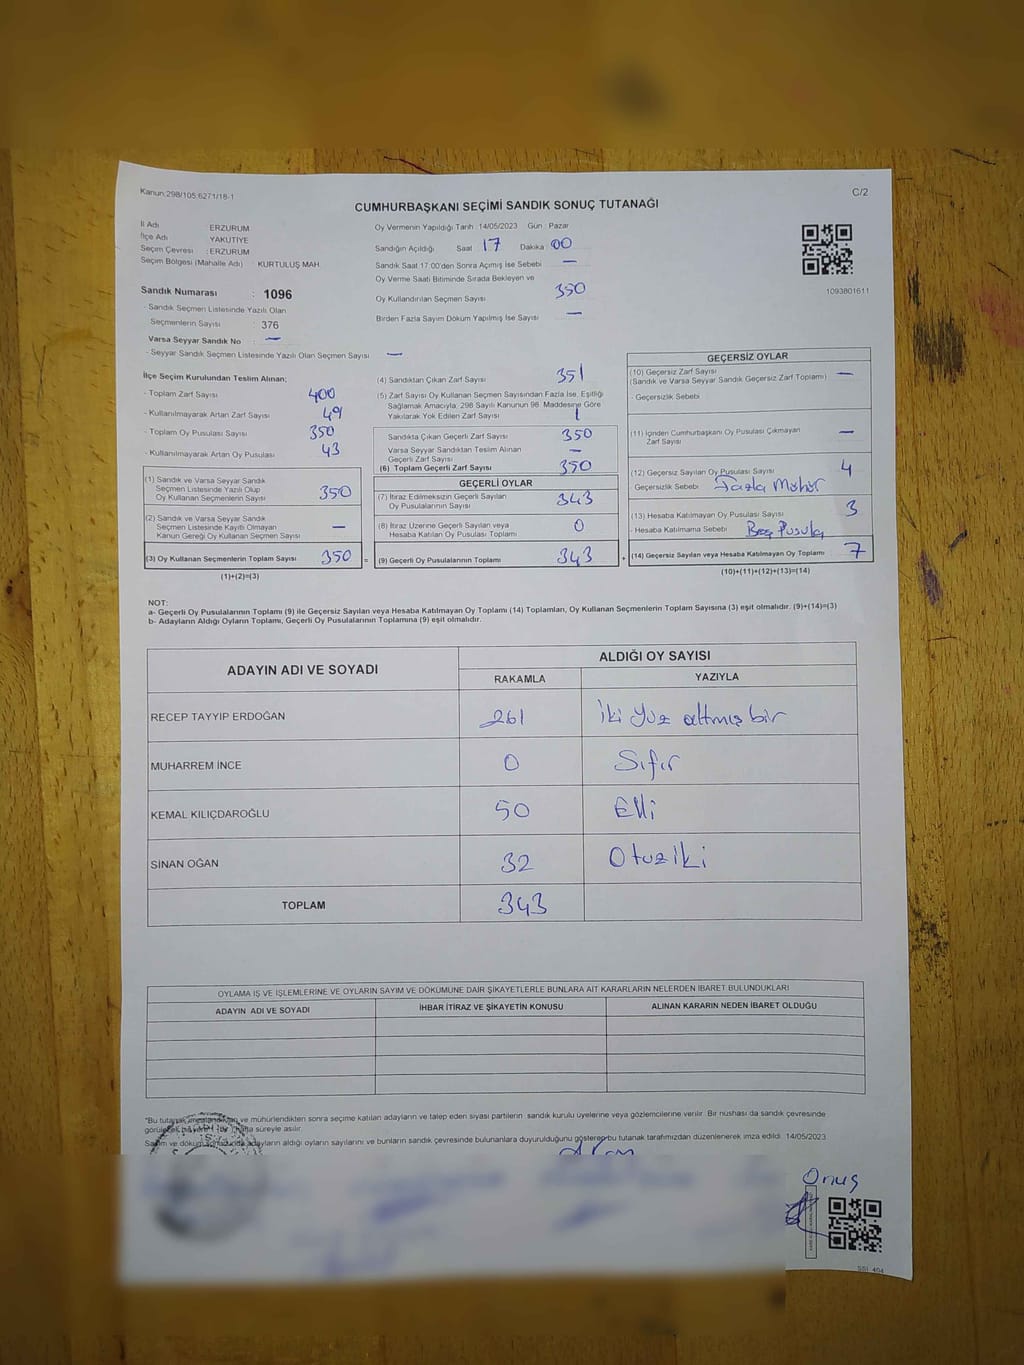 Kanun:298/105,6271/18-1
C/2
CUMHURBAŞKANI SEÇİMİ SANDIK SONUÇ TUTANAĞI
İl Adı ERZURUM
İlçe Adı YAKUTİYE
Seçim Çevresi : ERZURUM
Seçim Bölgesi (Mahalle Adı) KURTULUŞ MAH.
Sandık Numarası : 1096
- Sandık Seçmen Listesinde Yazılı Olan
Seçmenlerin Sayısı : 376
Varsa Seyyar Sandık No : —
- Seyyar Sandık Seçmen Listesinde Yazılı Olan Seçmen Sayısı —
Oy Vermenin Yapıldığı Tarih 14/05/2023 Gün : Pazar
Sandığın Açıldığı Saat 17 Dakika 00
Sandık Saat 17:00'den Sonra Açımış İse Sebebi —
Oy Verme Saati Bitiminde Sırada Bekleyen ve
Oy Kullandırılan Seçmen Sayısı 350
Birden Fazla Sayım Döküm Yapılmış İse Sayısı —
1093801611
İlçe Seçim Kurulundan Teslim Alınan;
- Toplam Zarf Sayısı 400
- Kullanılmayarak Artan Zarf Sayısı 49
- Toplam Oy Pusulası Sayısı 350
- Kullanılmayarak Artan Oy Pusulası 43
(1) Sandık ve Varsa Seyyar Sandık
Seçmen Listesinde Yazılı Olup
Oy Kullanan Seçmenlerin Sayısı 350
(2) Sandık ve Varsa Seyyar Sandık
Seçmen Listesinde Kayıtlı Olmayan
Kanun Gereği Oy Kullanan Seçmen Sayısı —
(3) Oy Kullanan Seçmenlerin Toplam Sayısı 350 =
(1)+(2)=(3)
(4) Sandıktan Çıkan Zarf Sayısı 351
(5) Zarf Sayısı Oy Kullanan Seçmen Sayısından Fazla İse, Eşitliği
Sağlamak Amacıyla; 298 Sayılı Kanunun 98. Maddesine Göre
Yakılarak Yok Edilen Zarf Sayısı 1
Sandıkta Çıkan Geçerli Zarf Sayısı 350
Varsa Seyyar Sandıktan Teslim Alınan
Geçerli Zarf Sayısı —
(6) Toplam Geçerli Zarf Sayısı 350
GEÇERLİ OYLAR
(7) İtiraz Edilmeksizin Geçerli Sayılan
Oy Pusulalarının Sayısı 343
(8) İtiraz Üzerine Geçerli Sayılan veya
Hesaba Katılan Oy Pusulası Toplamı 0
(9) Geçerli Oy Pusulalarının Toplamı 343 +
GEÇERSİZ OYLAR
(10) Geçersiz Zarf Sayısı
(Sandık ve Varsa Seyyar Sandık Geçersiz Zarf Toplamı) —
- Geçersizlik Sebebi
(11) İçinden Cumhurbaşkanı Oy Pusulası Çıkmayan
Zarf Sayısı —
(12) Geçersiz Sayılan Oy Pusulası Sayısı 4
Geçersizlik Sebebi Fazla Mühür
(13) Hesaba Katılmayan Oy Pusulası Sayısı 3
- Hesaba Katılmama Sebebi Boş Pusula
(14) Geçersiz Sayılan veya Hesaba Katılmayan Oy Toplamı 7
(10)+(11)+(12)+(13)=(14)
NOT:
a- Geçerli Oy Pusulalarının Toplamı (9) ile Geçersiz Sayılan veya Hesaba Katılmayan Oy Toplamı (14) Toplamları, Oy Kullanan Seçmenlerin Toplam Sayısına (3) eşit olmalıdır. (9)+(14)=(3)
b- Adayların Aldığı Oyların Toplamı, Geçerli Oy Pusulalarının Toplamına (9) eşit olmalıdır.
ADAYIN ADI VE SOYADI
ALDIĞI OY SAYISI
RAKAMLA YAZIYLA
RECEP TAYYIP ERDOĞAN 261 İki yüz altmış bir
MUHARREM İNCE 0 Sıfır
KEMAL KILIÇDAROĞLU 50 Elli
SİNAN OĞAN 32 Otuz iki
TOPLAM 343
OYLAMA İŞ VE İŞLEMLERİNE VE OYLARIN SAYIM VE DÖKÜMÜNE DAİR ŞİKAYETLERLE BUNLARA AİT KARARLARIN NELERDEN İBARET BULUNDUKLARI
ADAYIN ADI VE SOYADI İHBAR İTİRAZ VE ŞİKAYETİN KONUSU ALINAN KARARIN NEDEN İBARET OLDUĞU
*Bu tutanak ve mühürlendikten sonra seçime katılan adayların ve talep eden siyasi partilerin sandık kurulu üyelerine veya gözlemcilerine verilir. Bir nüshası da sandık çevresinde
süreyle asılır.
Sayım ve döküm adayların aldığı oyların sayılarını ve bunların sandık çevresinde bulunanlara duyurulduğunu gösteren bu tutanak tarafımızdan düzenlenerek imza edildi. 14/05/2023